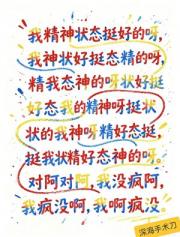 我精神状态挺好的呀，
我神状好挺态精的呀，
精我态神的呀状好挺
好态我的精神呀挺状
状的我神呀精好态挺，
挺我状精好态神的呀。
对阿对阿，我没疯阿，
我疯没啊，我啊疯没。
深海手术刀